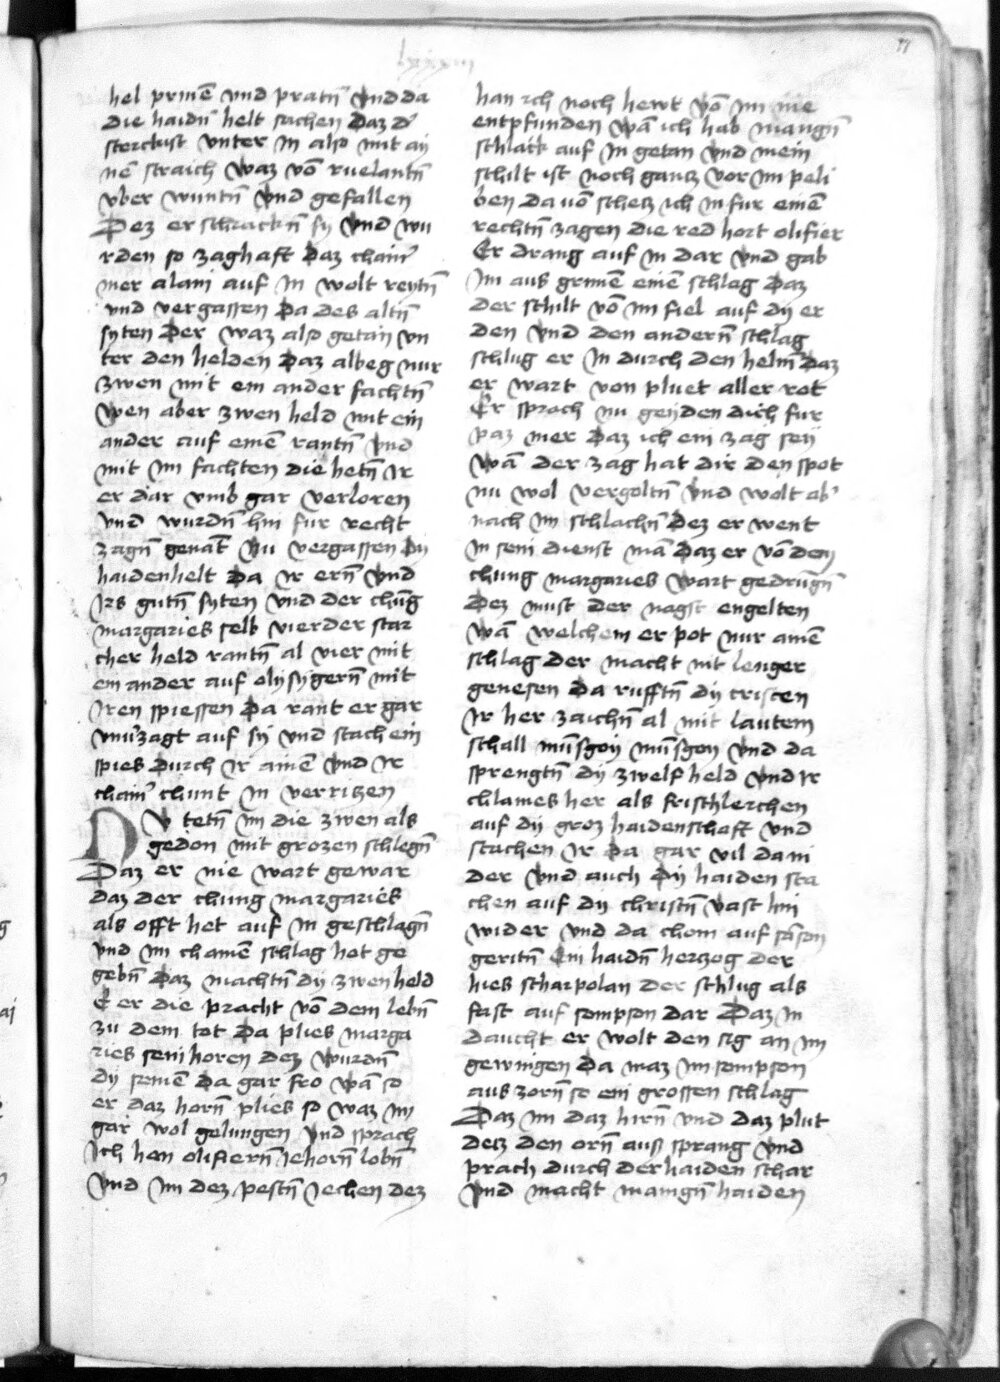 lxxxiii
77
hel prinē vnd pratn̄ vnd da
die haidn̄ helt sachen Daz d'
sterckist vnter In also mit ai
nē straich waz vō ruelantn̄
vber wuntn̄ vnd gefallen
Dez erschrackn̄ sy vnd wu
rden so zaghaft Daz chain'
mer alani auf In wolt reytn̄
vnd vergassen Da des altn̄
syten Der waz also getan vn
ter den helden Daz albeg nur
zwen mit ein ander fachtn̄
wen aber zwen held mit ein
ander auf einē rantn̄ vnd
mit im fachten die hetn̄ Ir
er dar vmb gar verloren
vnd wurdn̄ hin fur recht
zagn̄ genāt Nu vergassen Dij
haidenhelt Da ir ern̄ vnd
Irs gutn̄ syten vnd der chūg
margaries selb vierder star
cher held rantn̄ al vier mit
ein ander auf olysygern̄ mit
Iren spiessen Da rant er gar
vnu'zagt auf sy vnd stach ein
spies durch ir ainē vnd ir
chain' chunt in verriten
DV tetn̄ im die zwen als
gedon mit grozen schlegn̄
Daz er nie wart gewar
daz der chung margaries
als offt het auf in geschlagn̄
vnd im chainē schlag hot ge
gebn̄ Daz machtn̄ dij zwen held
E er die pracht vō dem lebn̄
zu dem tot Da plies marga
ries seni horen dez wurdn̄
dij seinē Da gar fro wā so
er daz horn̄ plies so waz im
gar wol gelungen vnd sprach
Ich hen olifiern̄ Ie horn̄ lobn̄
vnd im dez pestn̄ Iechen dez
han ich noch hewt vō im nie
entpfunden wā ich hab mangn̄
schlack auf in getan vnd mein
schilt ist noch gantz vor im peli
ben da vō schetz ich in fur einē
rechtn̄ zagen die red hort olifier
Er drang auf in dar vnd gab
im aus grimē einē schlag Daz
der schilt vō im fiel auf dij er
den vnd den andern̄ schlag
schlug er in durch den helm̄ Daz
er wart von pluet aller rot
Er sprach nu genden dich fur
paz mer Daz ich ein zag seij
wā der zag hat dir den spot
nu wol vergoltn̄ vnd wolt ab'
nach im schlachn̄ Dez er went
in seni dienst mā Daz er vō den
chung margaries wart gedrūgn̄
Dez must der nagst engelten
wā welchem er pot nur ainē
schlag der macht nit lenger
genesen Da rufftn̄ dij cristen
Ir her zaichn̄ al mit lautem
schall mūsgoij mūsgoy vnd da
sprengtn̄ dij zwelf held vnd ir
chlames her als frischlerchen
auf dij groz haidenschaft vnd
stachen ir Da gar vil da ni
der vnd auch Dij haiden sta
chen auf dij christn̄ vast hin
wider vnd da chom auf sāson
geritn̄ Ein haidn̄ hertzog der
hies scharpolan der schlug als
fast auf sompson dar Daz in
daucht er wolt den sig an im
gewingen Da maz im sompson
aus zorn̄ so ein grossen schlag
Daz im daz hirn̄ vnd daz plut
detz den orn̄ auss sprang vnd
prach durch der haiden schar
vnd macht maingn̄ haiden